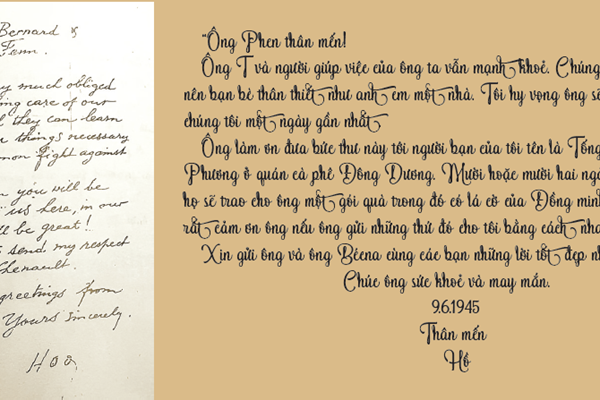 Bernard &
Fenn.
much obliged
care of our
they can learn
things necessary
fight against
you will be
us here, in our
be great!
send my respect
Chenault.
greetings from
Yours sincerely.
Hoo
“Ông Phen thân mến!
Ông T và người giúp việc của ông ta vẫn mạnh khoẻ. Chúng
nên bạn bè thân thiết như anh em một nhà. Tôi hy vọng ông sẽ
chúng tôi một ngày gần nhất
Ông làm ơn đưa bức thư này tới người bạn của tôi tên là Tống
Phương ở quán cà phê Đông Dương. Mười hoặc mười hai
họ sẽ trao cho ông một gói quà trong đó có lá cờ của Đồng minh
rất cảm ơn ông nếu ông gửi những thứ đó cho tôi bằng cách
Xin gửi ông và ông Bécna cùng các bạn những lời tốt đẹp
Chúc ông sức khoẻ và may mắn.
9.6.1945
Thân mến
Hồ